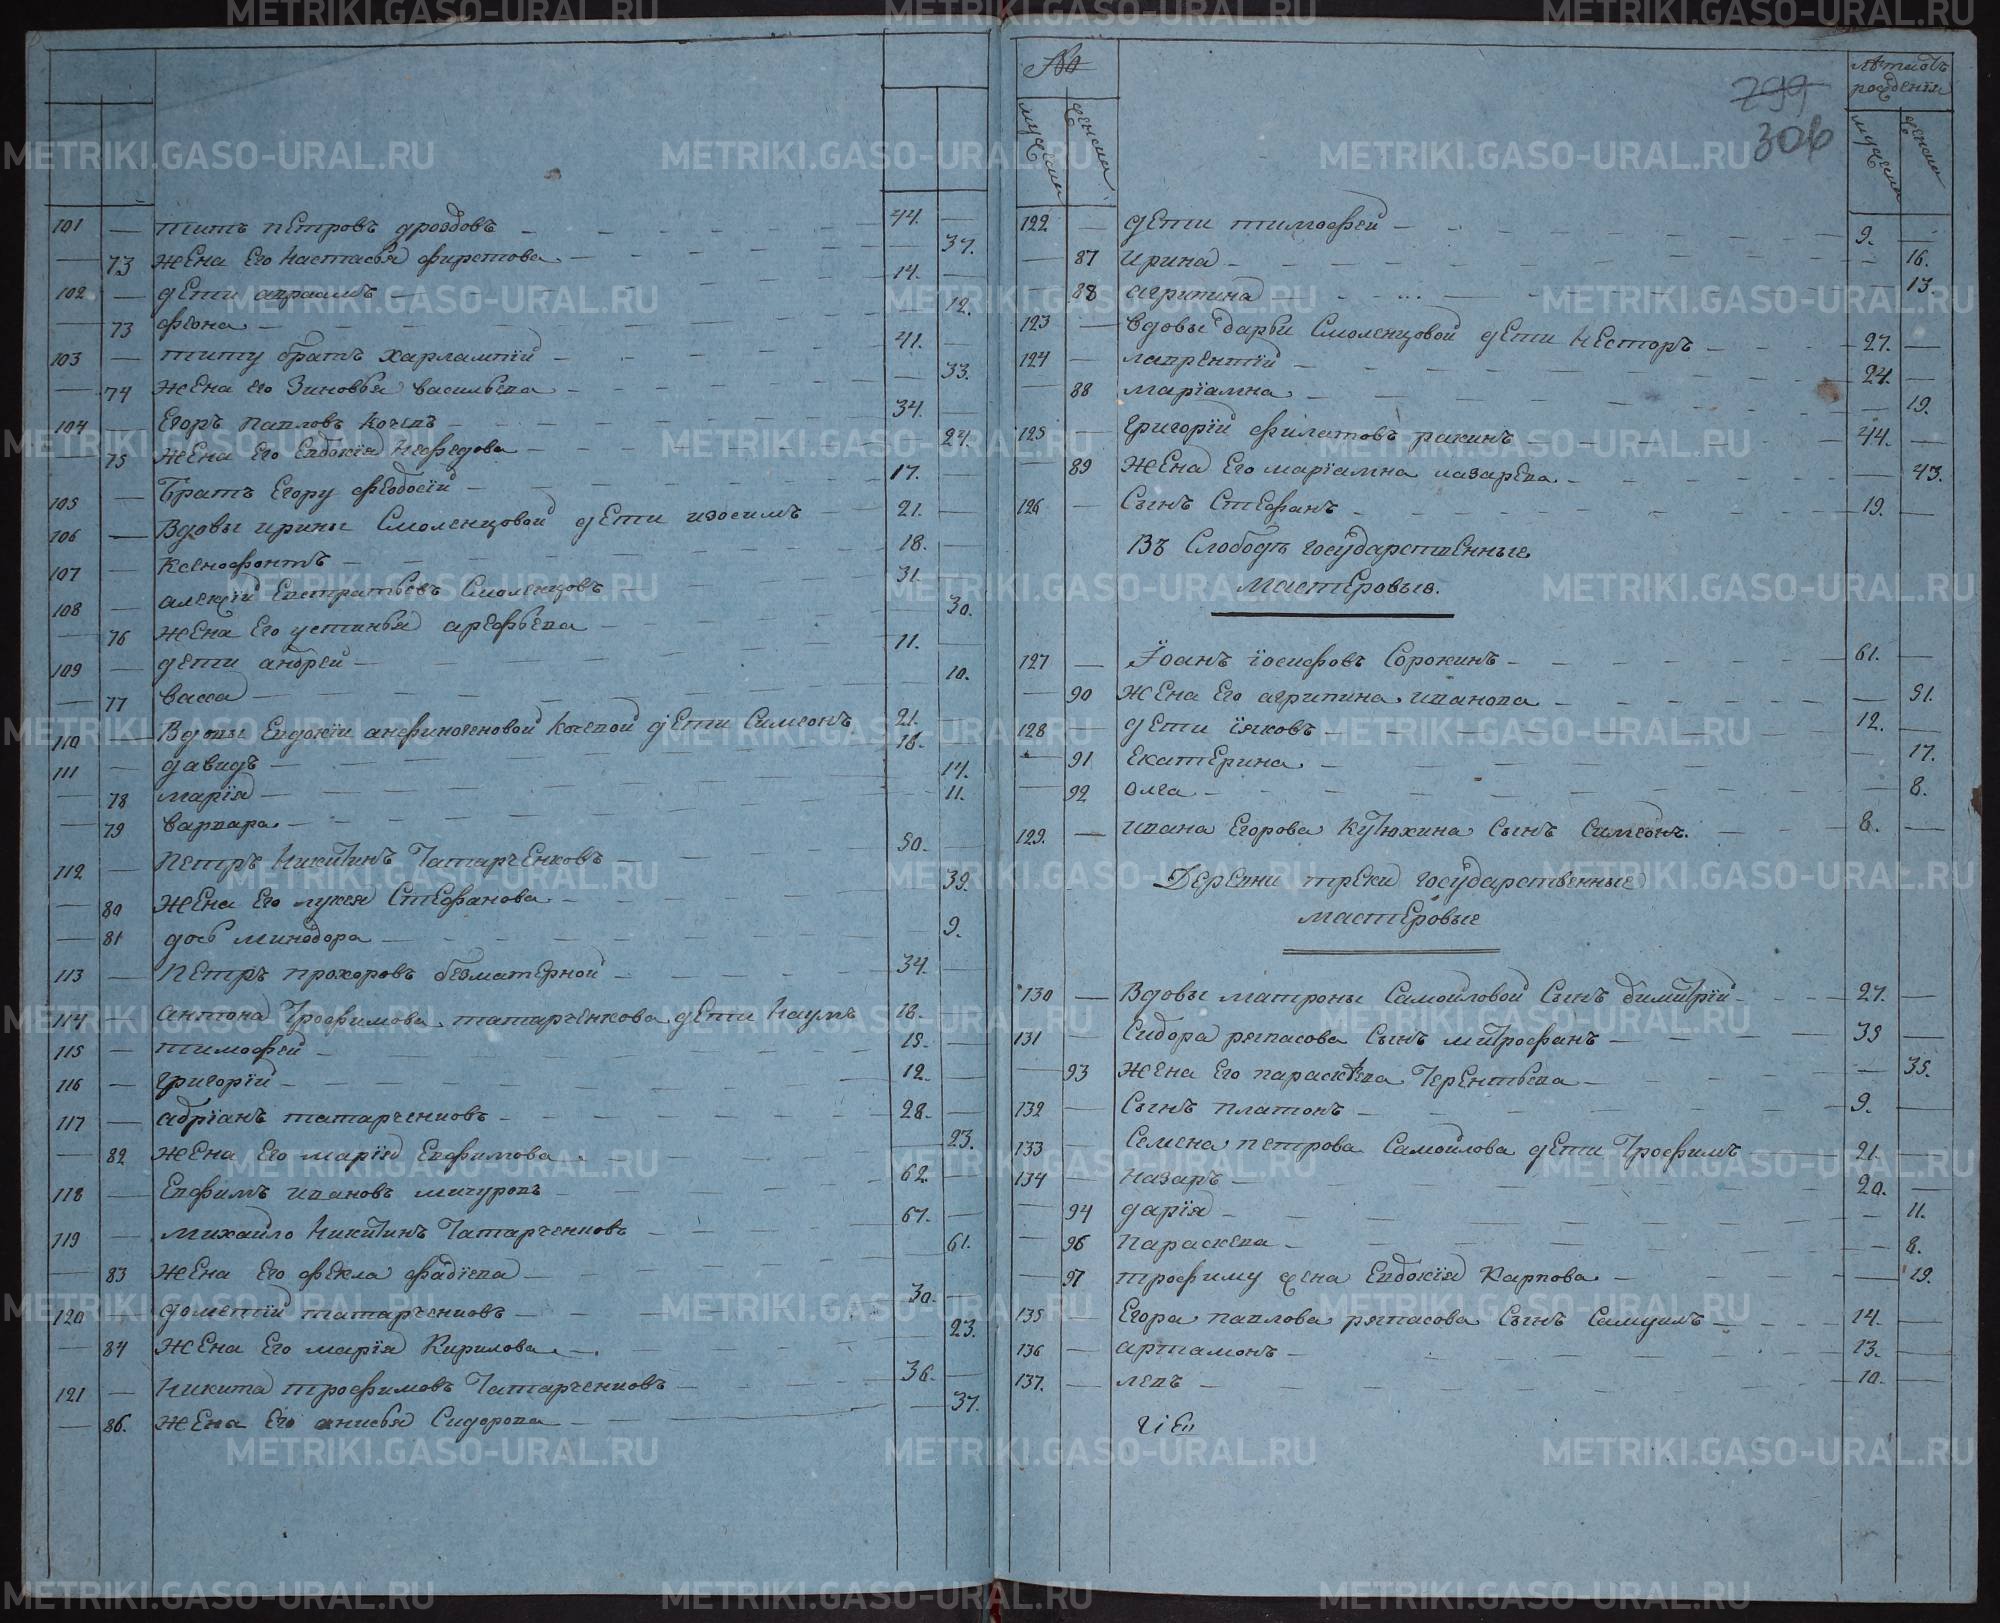 101 — титъ петровъ дроздовъ 44. —
— 73 жена Его Настасья фирстова — 37.
102 — дети авраамъ 14. —
— 73 фіона — 12.
103 — титу братъ харлампій 41. —
— 74 жена его Зиновья васильева — 33.
104 — Егоръ павловъ кочевъ 34. —
— 75 жена Его Евдокія Нефедова — 24.
105 — Братъ Егору феодосій 17. —
106 — Вдовы ирины Смоленцовой дети изосимъ 21. —
107 — ксенофонтъ 18. —
108 — алексій Евстратьевъ Смоленцовъ 31. —
— 76 жена Его устинья арефьева — 30.
109 — дети андрей 11. —
— 77 васса — 10.
110 — Вдовы Евдокіи анфиногеновой Кочевой дети Симеонъ 21. —
111 — давидъ 18. —
— 78 марія — 14.
— 79 варвара — 11.
112 — Петръ Никитинъ Татарченковъ 50. —
— 80 жена Его лукея Стефанова — 39.
— 81 дочь минодора — 9.
113 — Петръ прохоровъ безматерной 34. —
114 — антона Трофимова татарченкова дети Наумъ 18. —
115 — тимофей 15. —
116 — григорій 12. —
117 — адріанъ татарченковъ 28. —
— 82 жена Его марія Евфимова — 23.
118 — Евфимъ ивановъ мичуровъ 62. —
119 — михайло Никитинъ Татарченковъ 67. —
— 83 жена Его фекла фадіева — 61.
120 — дометій татарченковъ 30. —
— 84 жена Его марія Кирилова — 23.
121 — Никита трофимовъ Татарченковъ 36. —
— 86. жена Его анисья Сидорова — 37.
№ летъ отъ рожденія
299
306
мужеска женска мужеска женска
122 — дети тимофей 9. —
— 87 ирина — 16.
— 88 агрипина — 13.
123 — вдовы дарьи Смоленцовой дети Несторъ 27. —
124 — лаврентій 24. —
— 88 маріамна — 19.
125 — григорій филатовъ ракинъ 44. —
— 89 жена Его маріамна лазарева — 43.
126 — Сынъ Стефанъ 19. —
Въ Слободе государственные
мастеровые.
127 — Іоанъ іосифовъ Сорокинъ 61. —
— 90 жена Его агрипина иванова — 51.
128 — дети іяковъ 12. —
— 91 Екатерина — 17.
— 92 олга — 8.
129. — ивана Егорова Кутюхина Сынъ Симеонъ. 8. —
Деревни треки государственные
мастеровые
130 — Вдовы матроны Самойловой Сынъ димитрій 27. —
131 — Сидора ряпасова Сынъ митрофанъ 35 —
— 93 жена Его параскева Терентьева — 35.
132 — Сынъ платонъ 9. —
133 — Семена петрова Самойлова дети Трофимъ 21. —
134 — назаръ 20. —
— 94 дарія — 11.
— 96 параскева — 8.
— 97 трофиму жена Евдокія Карпова — 19.
135 — Егора павлова ряпасова Сынъ Самуилъ 14. —
136 — артамонъ 13. —
137. — левъ 10. —
METRIKI.GASO-URAL.RU